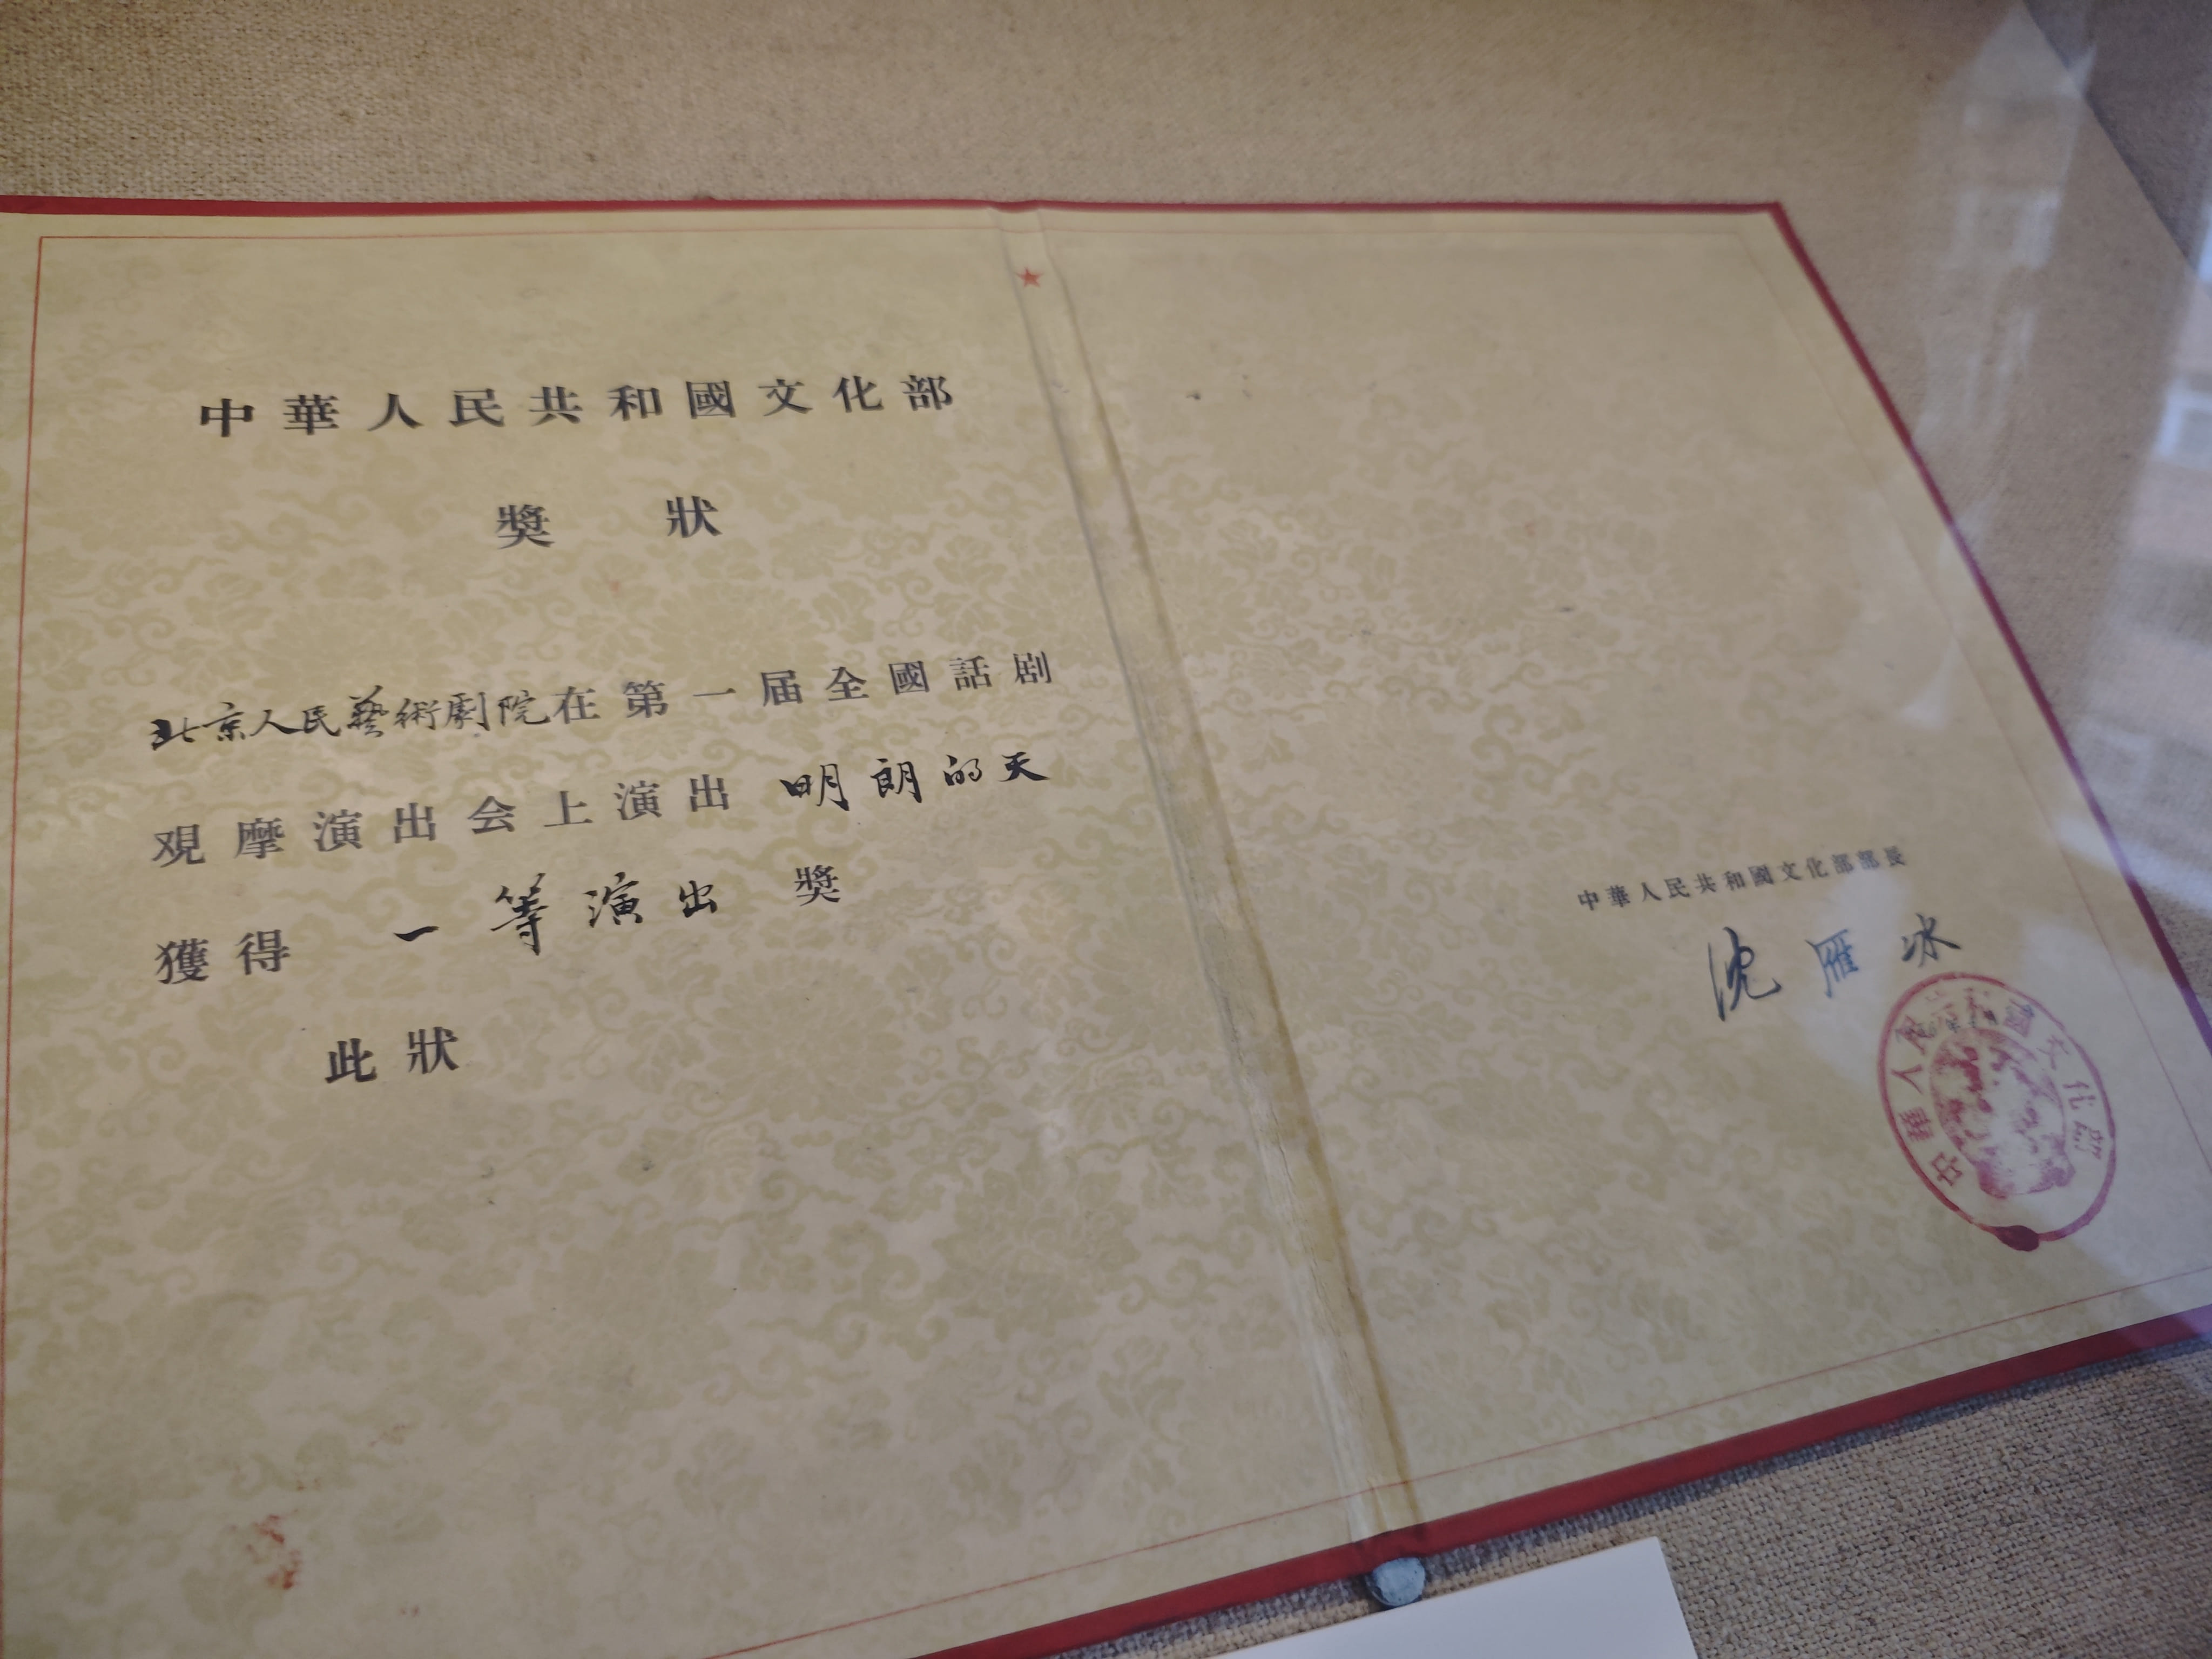 中華人民共和國文化部
獎狀
北京人民藝術劇院在第一届全國話剧
观摩演出会上演出 明朗的天
獲得 一等演出 獎
此狀
中華人民共和國文化部部長
沈雁冰
中華人民共和國文化部